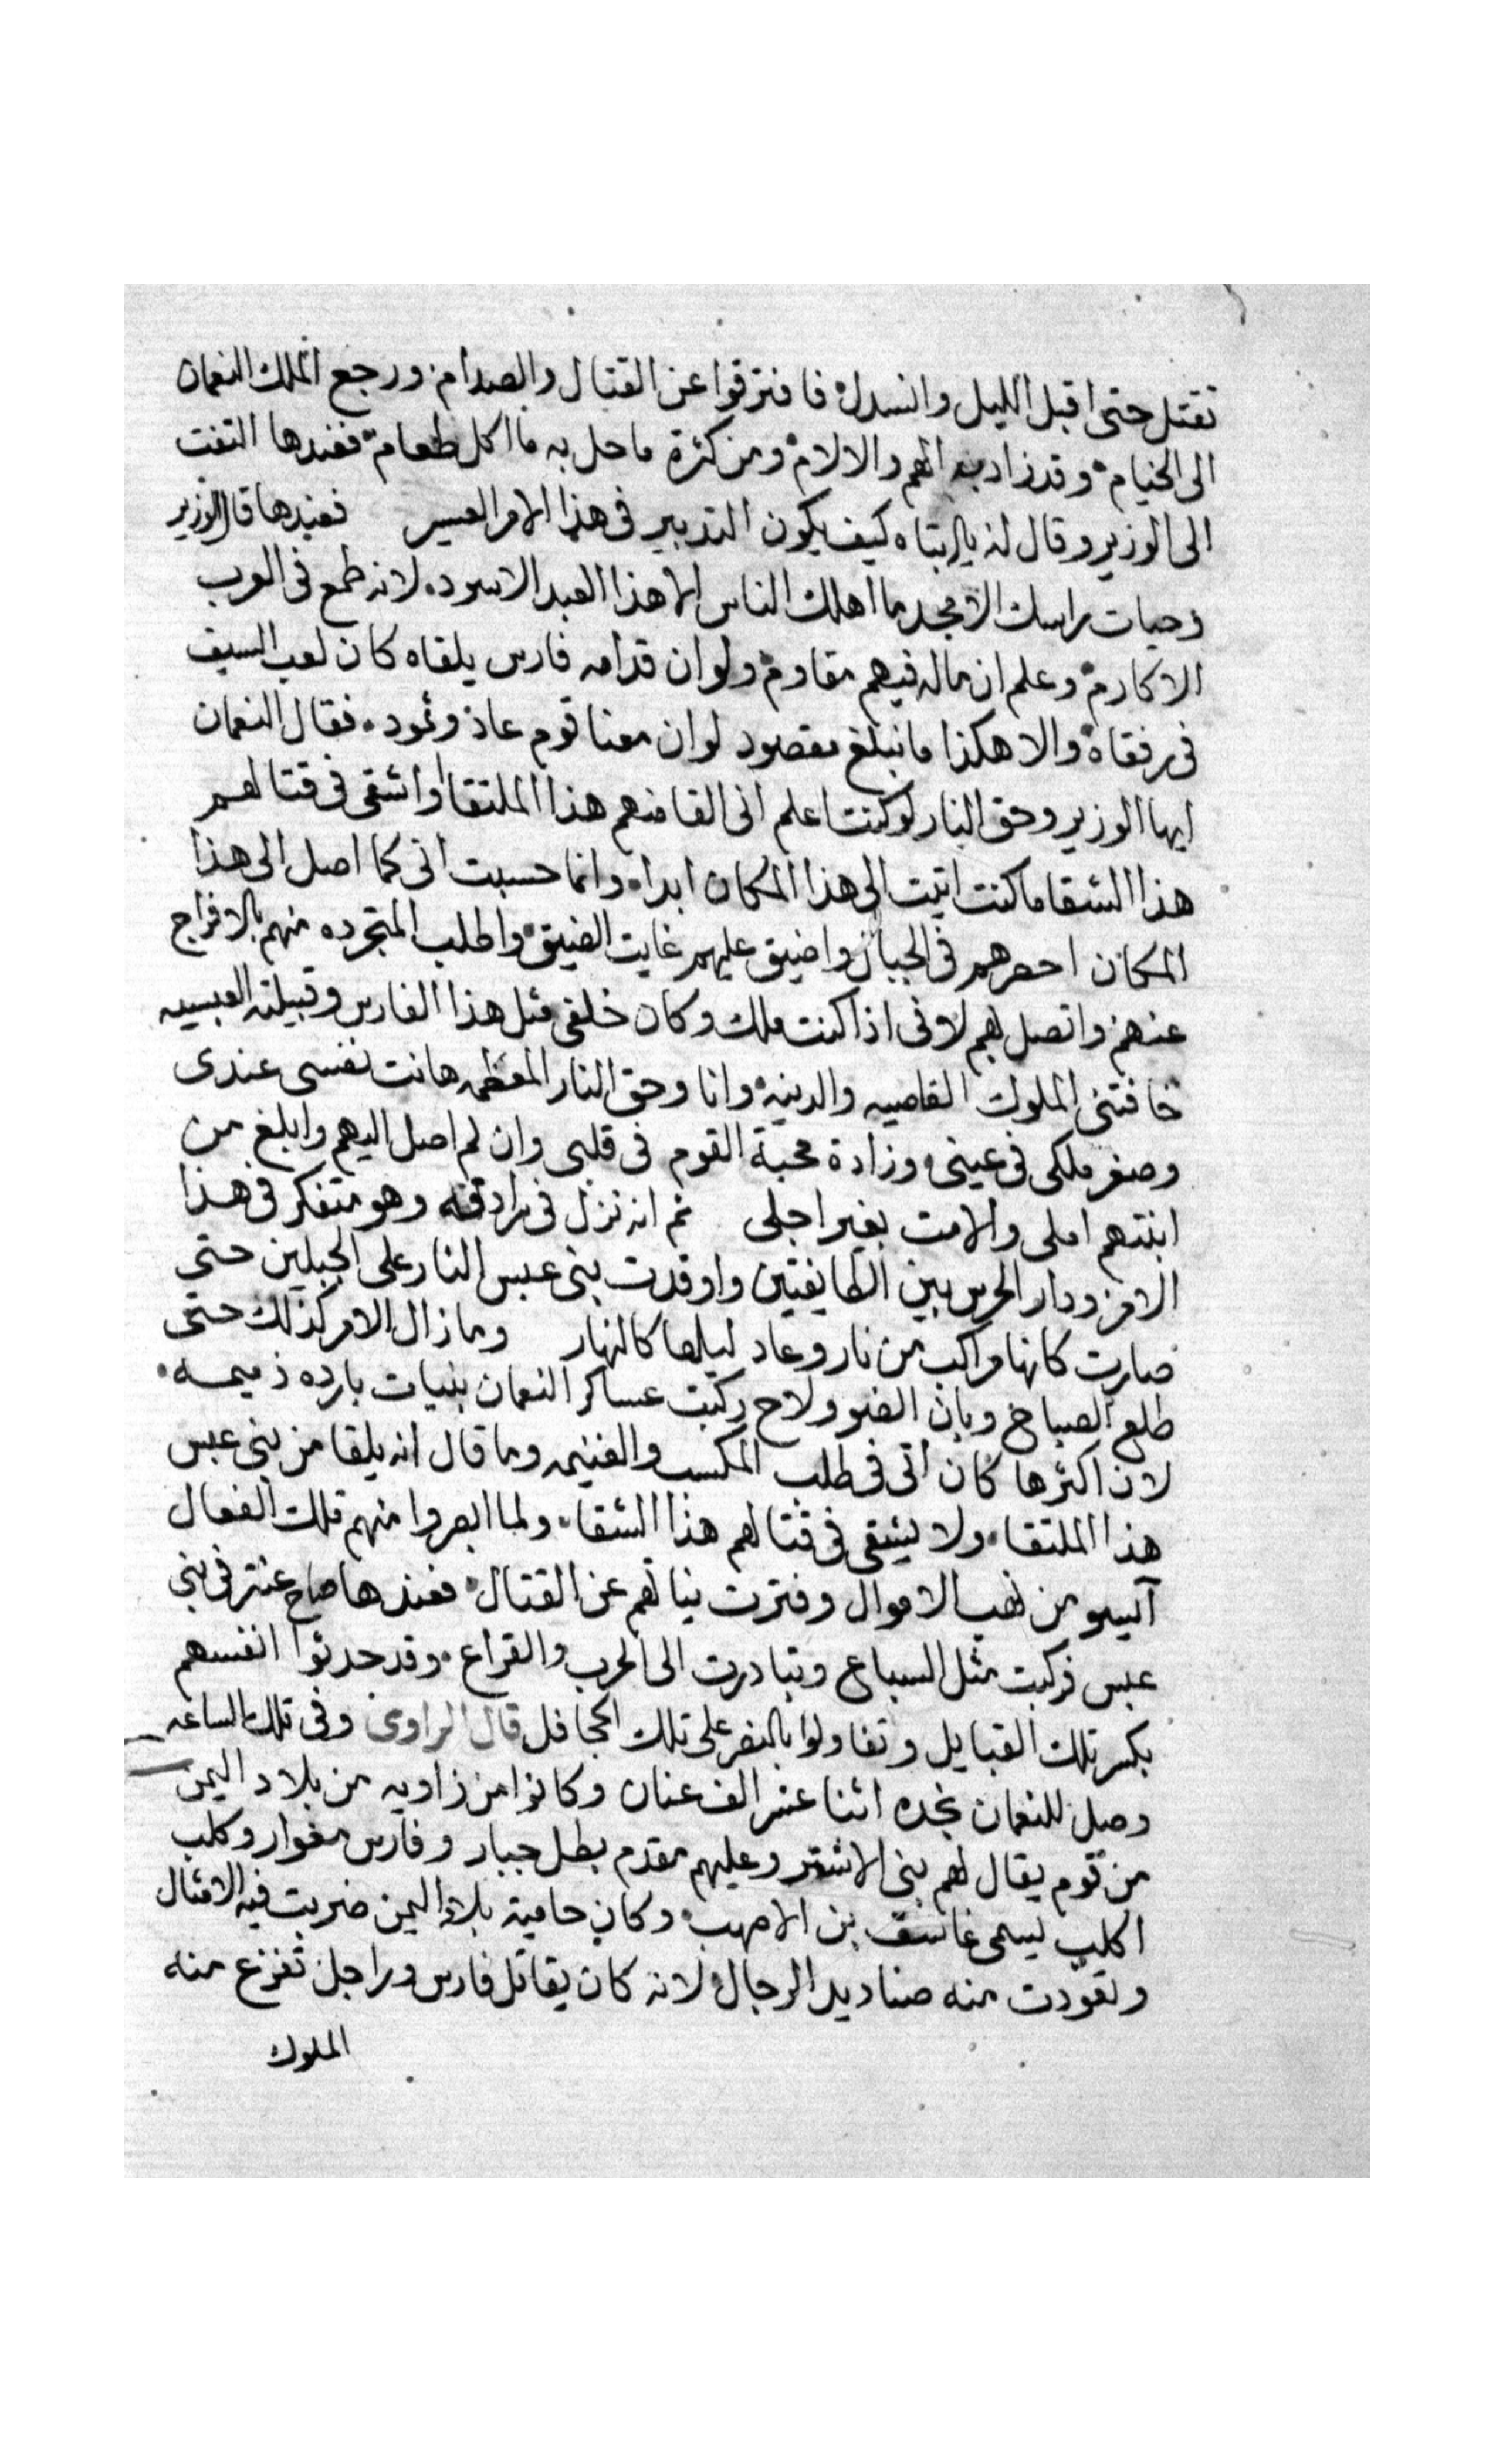 تقتل حتى اقبل الليل وانسدل فافترقوا عن القتال والصدام ورجع الملك النعمان
الى الخيام وقد زاد به الهم والالام ومن كثرة ما حل به ما اكل طعام فعندها التفت
الى الوزير وقال له يا ابتاه كيف يكون التدبير فى هذا الامر العسير فعندها قال الوزير
وحيات راسك الامجد ما اهلك الناس الا هذا العبد الاسود لانه طمع فى العرب
الاكارم وعلم ان ماله فيهم مقاوم ولو ان قدامه فارس يلقاه كان لعب السيف
فى رفقاه والا هكذا ما نبلغ مقصود لو ان معنا قوم عاد وثمود فقال النعمان
ايها الوزير وحق النار لو كنت اعلم انى القا منهم هذا الملتقا واشقى فى قتالهم
هذا الشقا ما كنت اتيت الى هذا المكان ابدا وانما حسبت انى كما اصل الى هذا
المكان احصرهم فى الجبال واضيق عليهم غايت الضيق واطلب المتجرده منهم بالافراج
عنهم واتصل بهم لانى اذا كنت ملك وكان خلفى مثل هذا الفارس وقبيلته العبسيه
خافتنى الملوك القاصيه والدنيه وانا وحق النار المعظمه هانت نفسى عندى
وصغر ملكى فى عينى وزادة محبة القوم فى قلبى وان لم اصل اليهم وابلغ من
ابنتهم املى والا مت بغير اجلى ثم انه نزل فى سرادقه وهو متفكر فى هذا
الامر ودار الحرس بين الطايفتين واوقدت بنى عبس النار على الجبلين حتى
صارت كانها مراكب من نار وعاد ليلها كالنهار وما زال الامر كذلك حتى
طلع الصباح وبان الضو ولاح ركبت عساكر النعمان بنيات بارده ذميمه
لان اكثرها كان اتى فى طلب المكسب والغنيمه وما قال انه يلقا من بنى عبس
هذا الملتقا ولا يشقى فى قتالهم هذا الشقا ولما ابصروا منهم تلك الفعال
آيسو من نهب الاموال وفترت نياتهم عن القتال فعندها صاح عنتر فى بنى
عبس فركبت مثل السباع وتبادرت الى الحرب والقراع وقد حدثوا انفسهم
بكسر تلك القبايل وتفاولوا بالنصر على تلك الجحافل قال الراوى وفى تلك الساعه
وصل للنعمان نجده اثنا عشر الف عنان وكانوا من زاويه من بلاد اليمن
من قوم يقال لهم بنى الاشتر وعليهم مقدم بطل جبار وفارس مغوار وكلب
اكلب يسمى غاسق بن الاصهب وكان حامية بلاد اليمن ضربت فيه الامثال
وتعودت منه صناديد الرجال لانه كان يقاتل فارس وراجل تفزع منه
الملوك